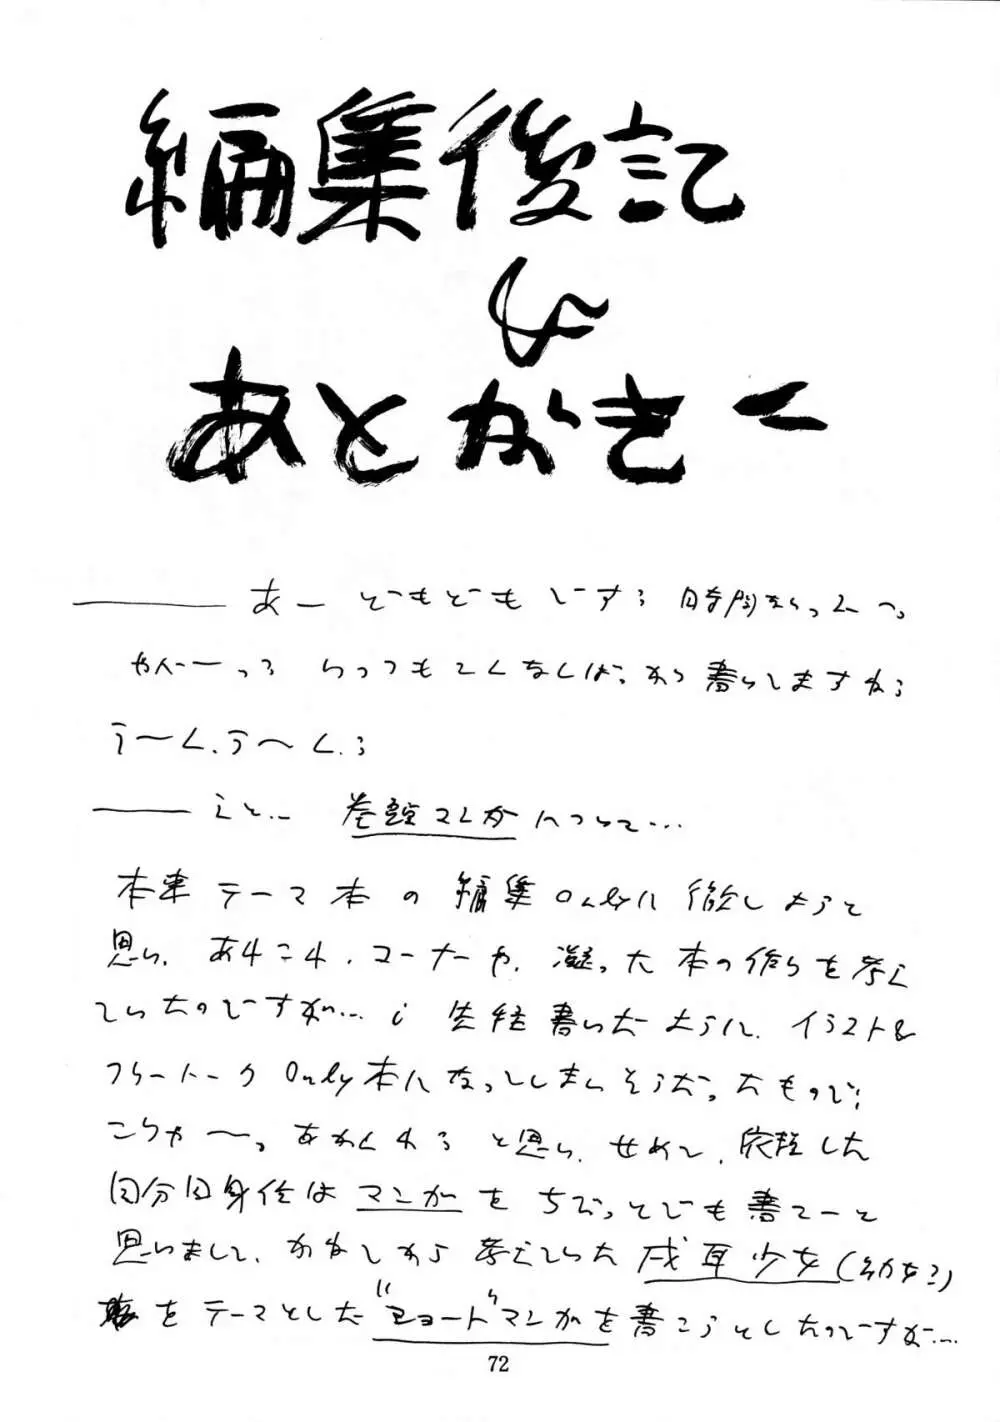 編集後記
&
あとがきー
――― あー どもどもでーす； 時間なくってー。
やべーっス いつもてくなしば、から書いてますね；
うーん、うーん；
――― えと… 巻頭マンガについて…
本来テーマ本の編集Onlyに徹しようと
思い、あれこれ、コーナーや、凝った本の作りを考え
ていたのですが…； 先程書いたように、イラスト&
フリートークOnly本になってしまいそうだったもので；
こりゃ〜。あかんわ；と思い、せめて、依頼した
自分自身位はマンガをちょっとでも書てーと
思いまして、かねてから考えていた 戌耳少女(幼女?)
をテーマとした "ショート"マンガを書こうとしたのですが…
72